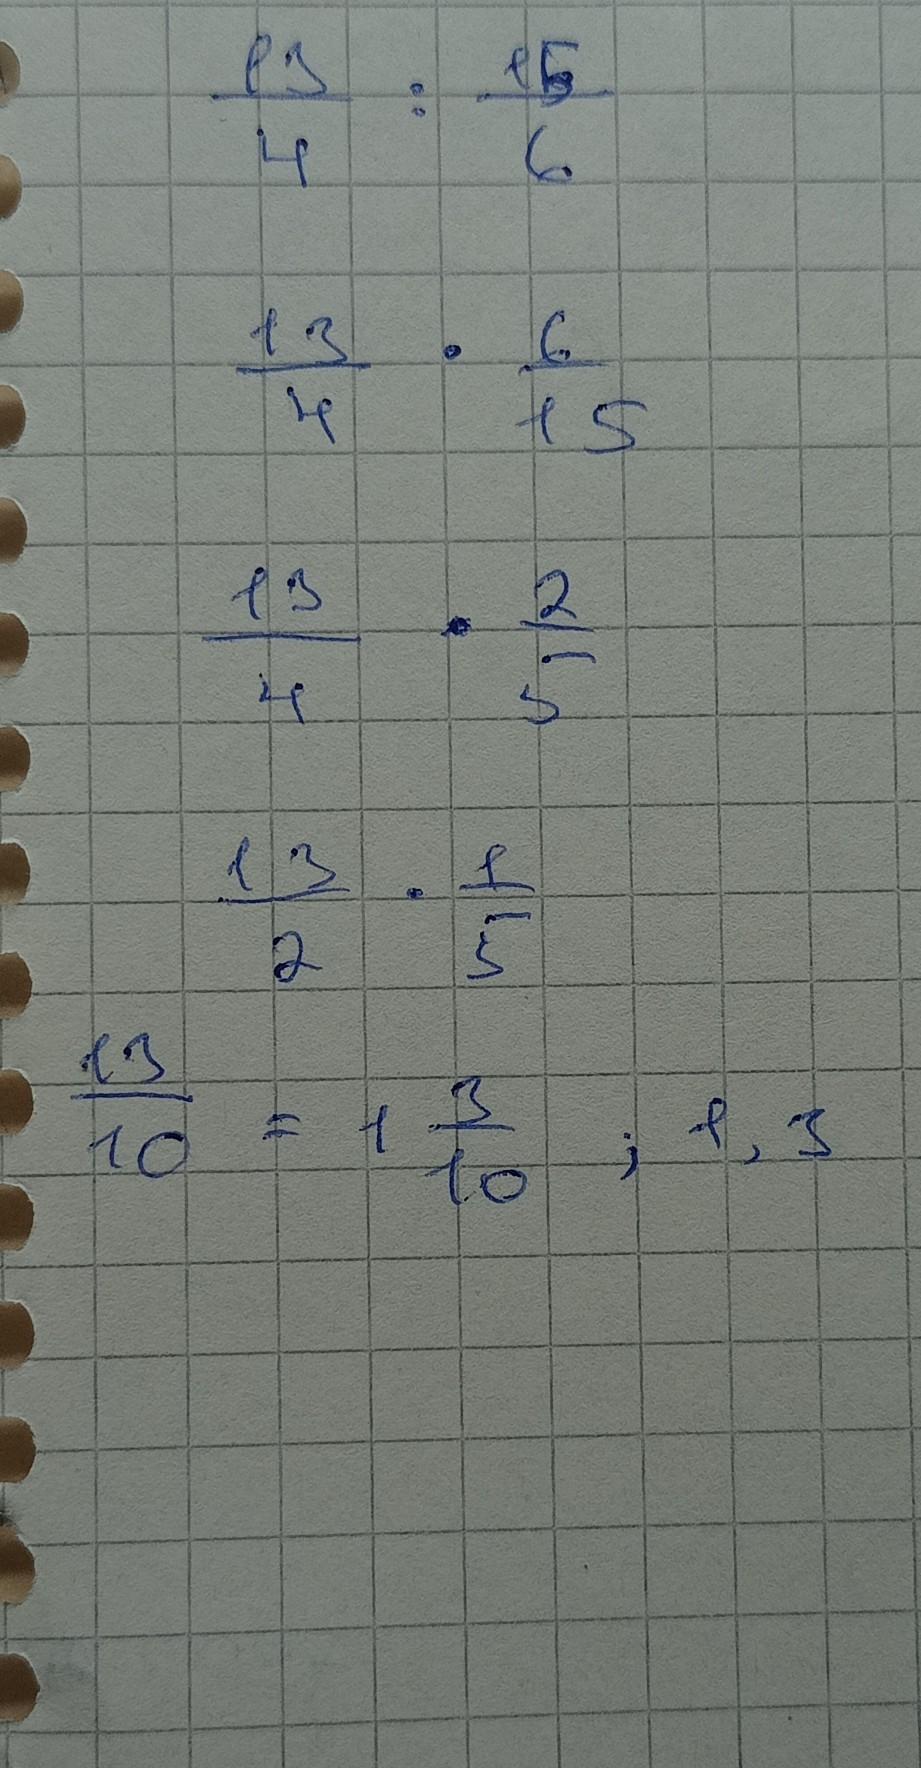 13/4 : 15/6
13/4 · 6/15
13/4 · 2/5
13/2 · 1/5
13/10 = 1 3/10 ; 1,3